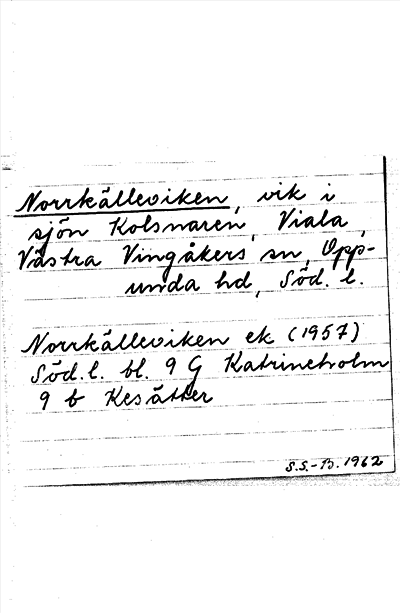 Norrkälleviken, vik i
sjön Kolsnaren, Viala,
Västra Vingåkers sn, Opp-
unda hd, Söd. l.
Norrkälleviken ek (1957)
Söd. l. bl. 9 G Katrineholm
9 b Kesätter
S.S.-B. 1962